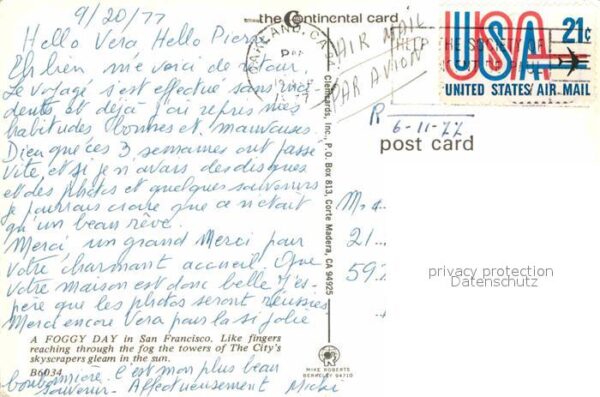 9/20/77
the Continental card
Hello Vera Hello Pierre
Eh bien me voici de retour.
Le voyage s'est effectué sans inci-
dents, et déjà j'ai repris mes
habitudes bonnes et mauvaises.
Dieu que ces 3 semaines ont passé
vite, et si je n'avais des disques
et des photos et quelques souvenirs
je pourrais croire que ce n'était
qu'un beau rêve.
Merci, un grand Merci pour
votre charmant accueil. Que
votre maison est donc belle. J'es-
père que les photos seront réussies
Merci encore Vera pour la si jolie
bonbonnière. C'est mon plus beau
souvenir. Affectueusement
A FOGGY DAY in San Francisco. Like fingers
reaching through the fog the towers of The City's
skyscrapers gleam in the sun.
B6034
OAKLAND, CA
PM
AIR MAIL
PAR AVION
HELP THE SOCIETY OF
USA 21c
UNITED STATES AIR MAIL
R 6-11-77
post card
Clemcards, Inc., P. O. Box 813, Corte Madera, CA 94925
21..
59
privacy protection
Datenschutz
MIKE ROBERTS
BERKELEY 94710